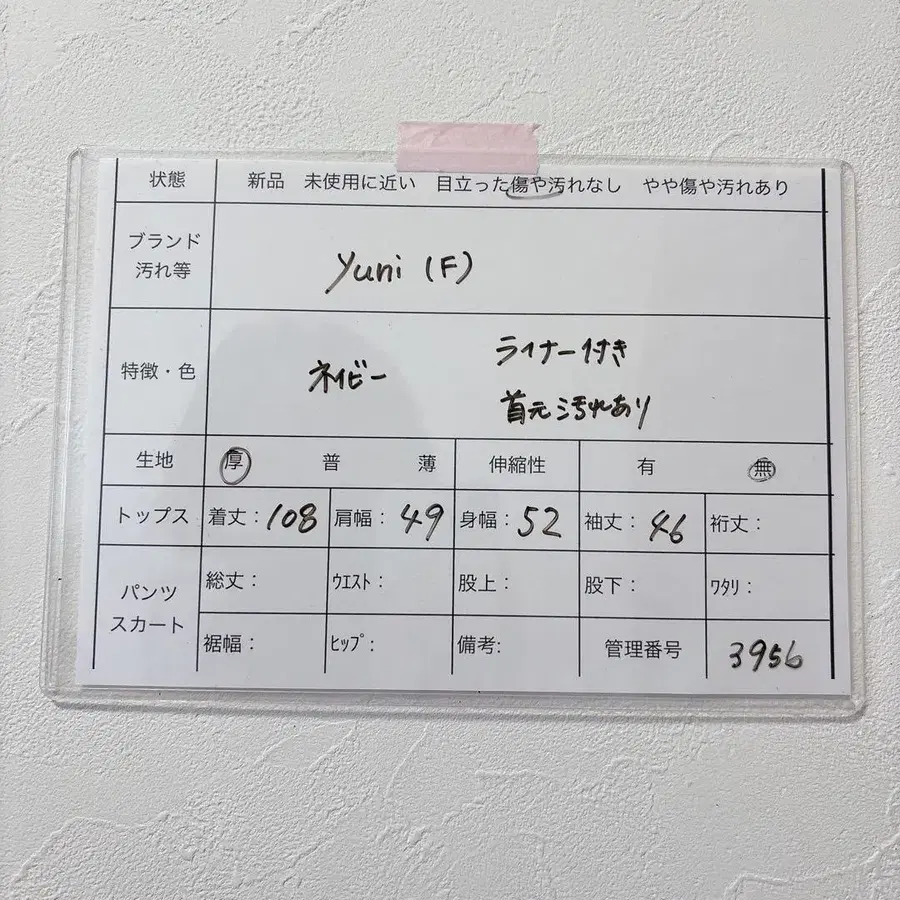 状態 新品 未使用に近い 目立った傷や汚れなし やや傷や汚れあり
ブランド
汚れ等
yuni (F)
特徴・色
ネイビー
ライナー付き
首元汚れあり
生地 厚 普 薄 伸縮性 有 無
トップス 着丈：108 肩幅：49 身幅：52 袖丈：46 裄丈：
パンツ
スカート
総丈： ｳｴｽﾄ： 股上： 股下： ﾜﾀﾘ：
裾幅： ﾋｯﾌﾟ： 備考: 管理番号 3956